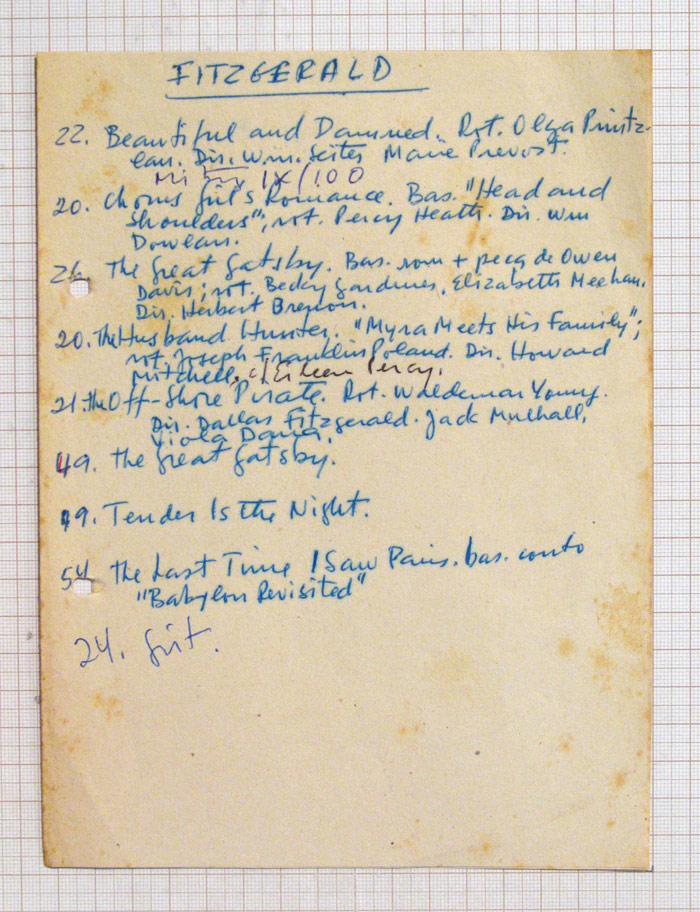 FITZGERALD
22. Beautiful and Damned. Rot. Olga Printz-
lau. Dir. Wm. Seiter Marie Prevost.
IX/100
20. Chorus Girl's Romance. Bas. "Head and
Shoulders"; rot. Percy Heath. Dir. Wm
Dowlan.
26. The Great Gatsby. Bas. rom + peça de Owen
Davis; rot. Becky Gardiner, Elizabeth Meehan.
Dir. Herbert Brenon.
20. The Husband Hunter. "Myra Meets His Family";
rot. Joseph Franklin Poland. Dir. Howard
Mitchell, c/ Eileen Percy.
21. The Off-Shore Pirate. Rot. Waldemar Young.
Dir. Dallas Fitzgerald. Jack Mulhall,
Viola Dana.
49. The Great Gatsby.
49. Tender Is the Night.
54 The Last Time I Saw Paris. bas. conto
"Babylon Revisited"
24. Grit.